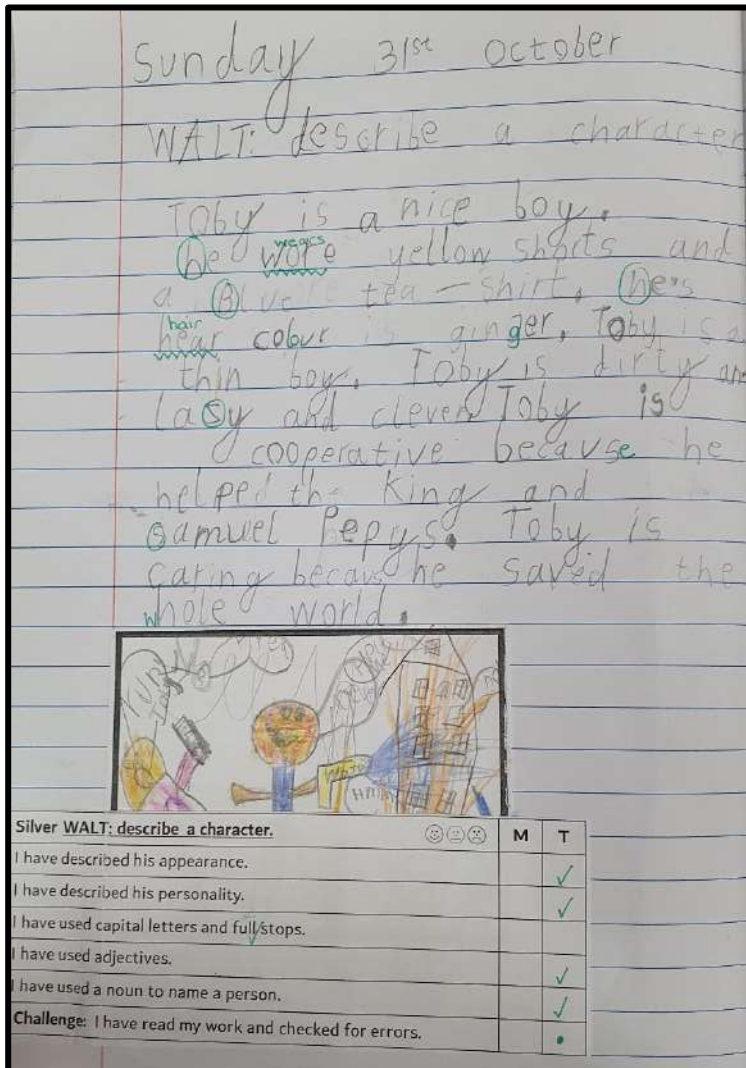 Sunday 31st October
WALT: describe a character
Toby is a nice boy.
wears
he wore yellow shorts and
a Blue tea-shirt, he's
hair
hear colour is ginger, Toby is a
thin boy. Toby is dirty an
lasy and clever Toby is
cooperative because he
helped the King and
Samuel Pepys. Toby is
caring because he saved the
whole world.
Silver WALT: describe a character. M T
I have described his appearance. ✓
I have described his personality. ✓
I have used capital letters and full stops.
I have used adjectives. ✓
I have used a noun to name a person. ✓
Challenge: I have read my work and checked for errors. •